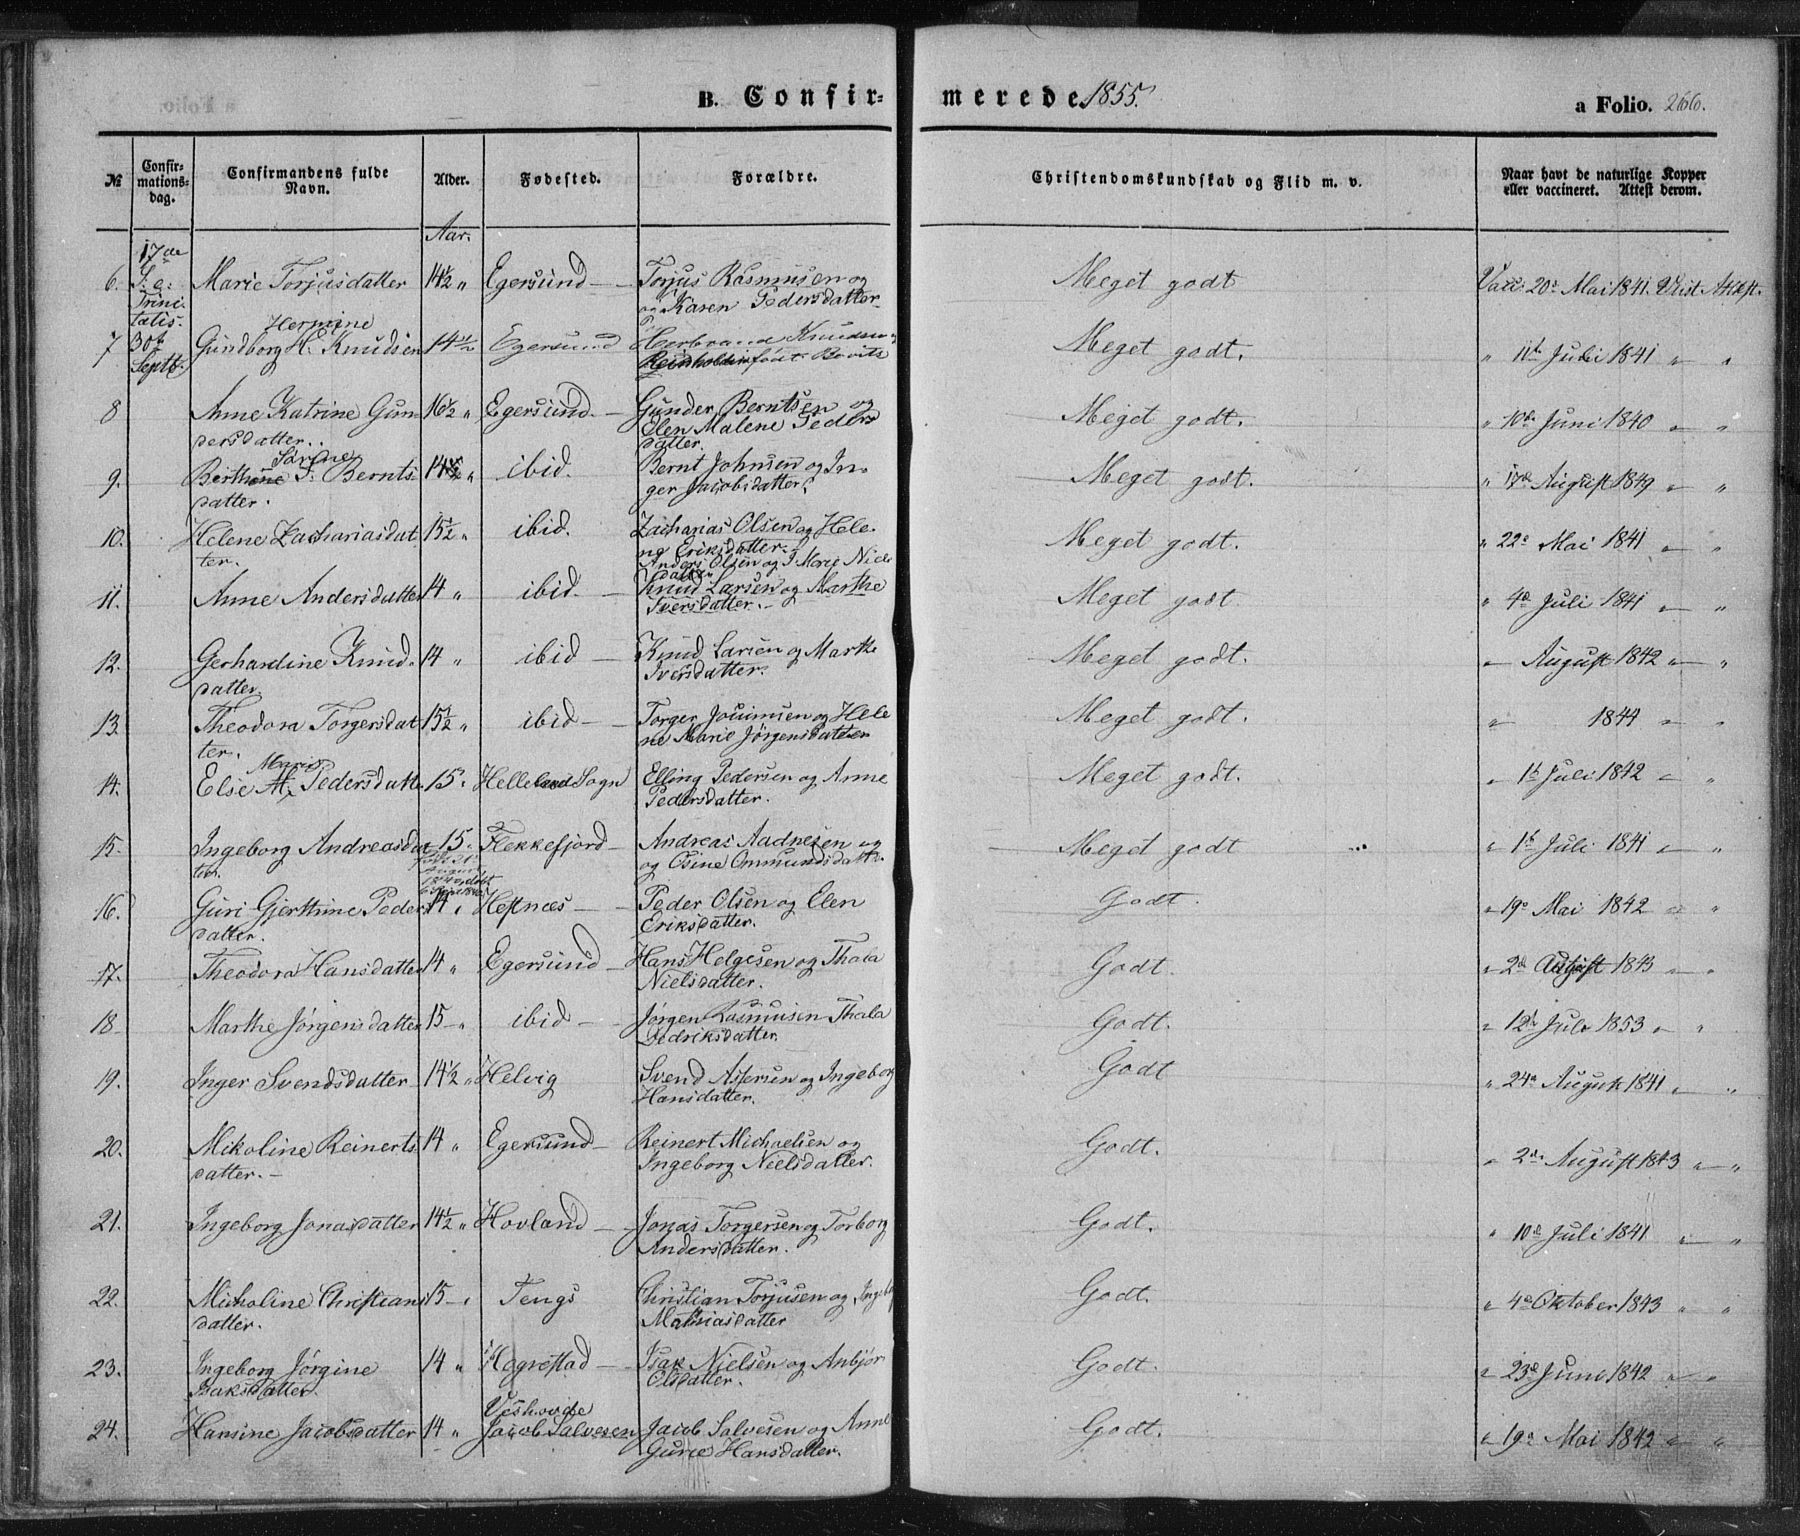 B. Confir- merede 1855. a Folio. 266.
№ Confir-mations-dag. Confirmandens fulde Navn. Alder. Fødested. Forældre. Christendomskundskab og Flid m. v. Naar havt de naturlige Kopper eller vaccineret. Attest derom.
Aar.
17de
6. S. e. Marie Torjusdatter 14½ " Egersund — Torjus Rasmusen og Meget godt Vacc. 20de Mai 1841. Attest.
Trini-tatis. og Karen Pedersdatter
Hermine
7 30te Gundborg H. Knudsen 14½ Egersund Herbrand Knudsen Meget godt. " 11te Juli 1841 " "
Septb. født
8 Anne Katrine Gun- 16½ " Egersund. — Gunder Berntsen og Meget godt. " 10de Juni 1840 " "
dersdatter. Elen Malene Peders
datter.
Sørine
9. Berthine S. Bernts- 14½ " ibid. Bernt Johnsen og In- Meget godt. " 17de August 1849 " "
datter. ger Jacobsdatter.
10. Helene Zachariasdat 15½ " ibid. Zacharias Olsen og Hele- Meget godt. " 22de Mai 1841 " "
ter. ne Eriksdatter.
Anders Olsen og Marie Niels
datter
11. Anne Andersdatter 14 " ibid. — Knud Larsen og Marthe Meget godt " 4de Juli 1841 " "
Iversdatter. —
12. Gerhardine Knud- 14 " ibid — Knud Larsen og Marthe Meget godt. " August 1842 " "
datter. Iversdatter.
13. Theodora Torgersdat 15½ " ibid — Torger og Hele Meget godt. " 1844 " "
ter. ne Marie Jørgensdatter
Marie
14. Else M. Pedersdatt 15 " Helleland Sogn Elling Pedersen og Anne Meget godt. " 1te Juli 1842 " "
Pedersdatter.
15. Ingeborg Andreasdat 15 " Flekkefjord — Andreas Aadnesen og Meget godt " 1te Juli 1841 " "
ter. og Osine Ommundsdatt.
16. Guri Gjerthine Peders 14 " Hestnæs — Peder Olsen og Elen Godt. " 19de Mai 1842 " "
datter. Eriksdatter.
17. Theodora Hansdatter 14 " Egersund — Hans Helgesen og Thala Godt. " 2de August 1843 " "
Nielsdatter.
18 Marthe Jørgensdatter 15 " ibid — Jørgen Rasmusen Thala Godt. " 12te Juli 1853 " "
Didriksdatter.
19. Inger Svendsdatter 14½ " Helvig Svend Assersen og Ingeborg Godt " 24de August 1841 " "
Hansdatter.
20. Mikoline Reinerts 14 " Egersund — Reinert Michaelsen og Godt. " 2de August 1843 " "
datter. — Ingeborg Nielsdatter.
21. Ingeborg Jonasdatter 14½ " Hovland — Jonas Torgersen og Torborg Godt. " 10de Juli 1841 " "
Andersdatter.
22. Micholine Christians 15 " Tengs Christian Torjusen og Ingeb Godt. " 4de Oktober 1843 " "
datter. Mathiasdatter
23. Ingeborg Jørgine 14 " Hogrestad — Isak Nielsen og Anbjør Godt. " 23de Juni 1842 " "
Isaksdatter. Olsdatter.
24. Hansine Jacobsdatter 14 " Jacob Salvesen Jacob Salvesen og Anne Godt. " 19de Mai 1842 " "
Gurie Hansdatter.